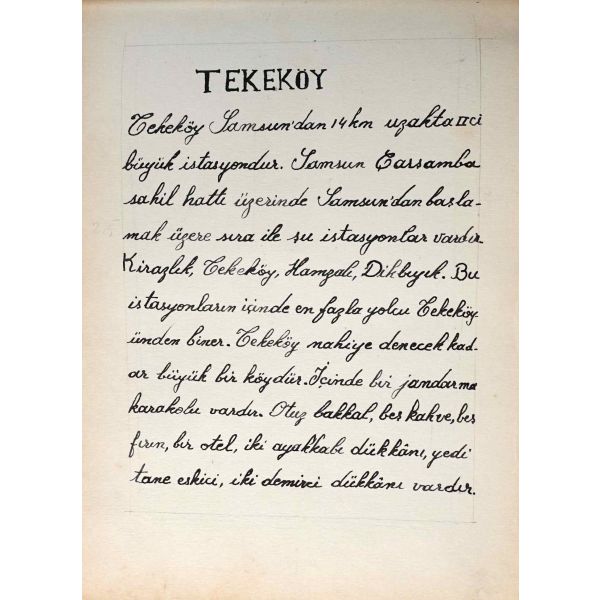 TEKEKÖY
Tekeköy Samsun'dan 14 km uzakta II ci
büyük istasyondur. Samsun Çarsamba
sahil hattı üzerinde Samsun'dan başla-
mak üzere sıra ile şu istasyonlar vardır.
Kirazlık, Tekeköy, Hamzalı, Dikbıyık. Bu
istasyonların içinde en fazla yolcu Tekeköy
ünden biner. Tekeköy nahiye denecek kad-
ar büyük bir köydür. İçinde bir jandarma
karakolu vardır. Otuz bakkal, beş kahve, beş
fırın, bir otel, iki ayakkabı dükkânı, yedi
tane eskici, iki demirci dükkânı vardır.